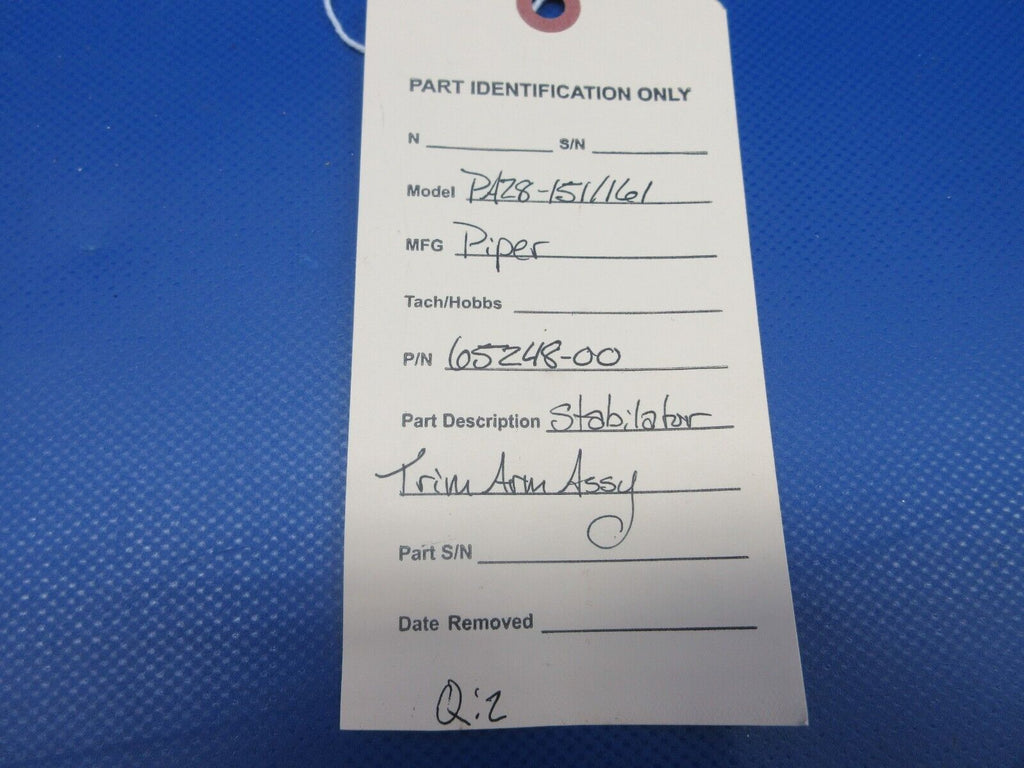 PART IDENTIFICATION ONLY
N S/N
Model PA28-151/161
MFG Piper
Tach/Hobbs
P/N 65248-00
Part Description Stabilator
Trim Arm Assy
Part S/N
Date Removed
Q:2